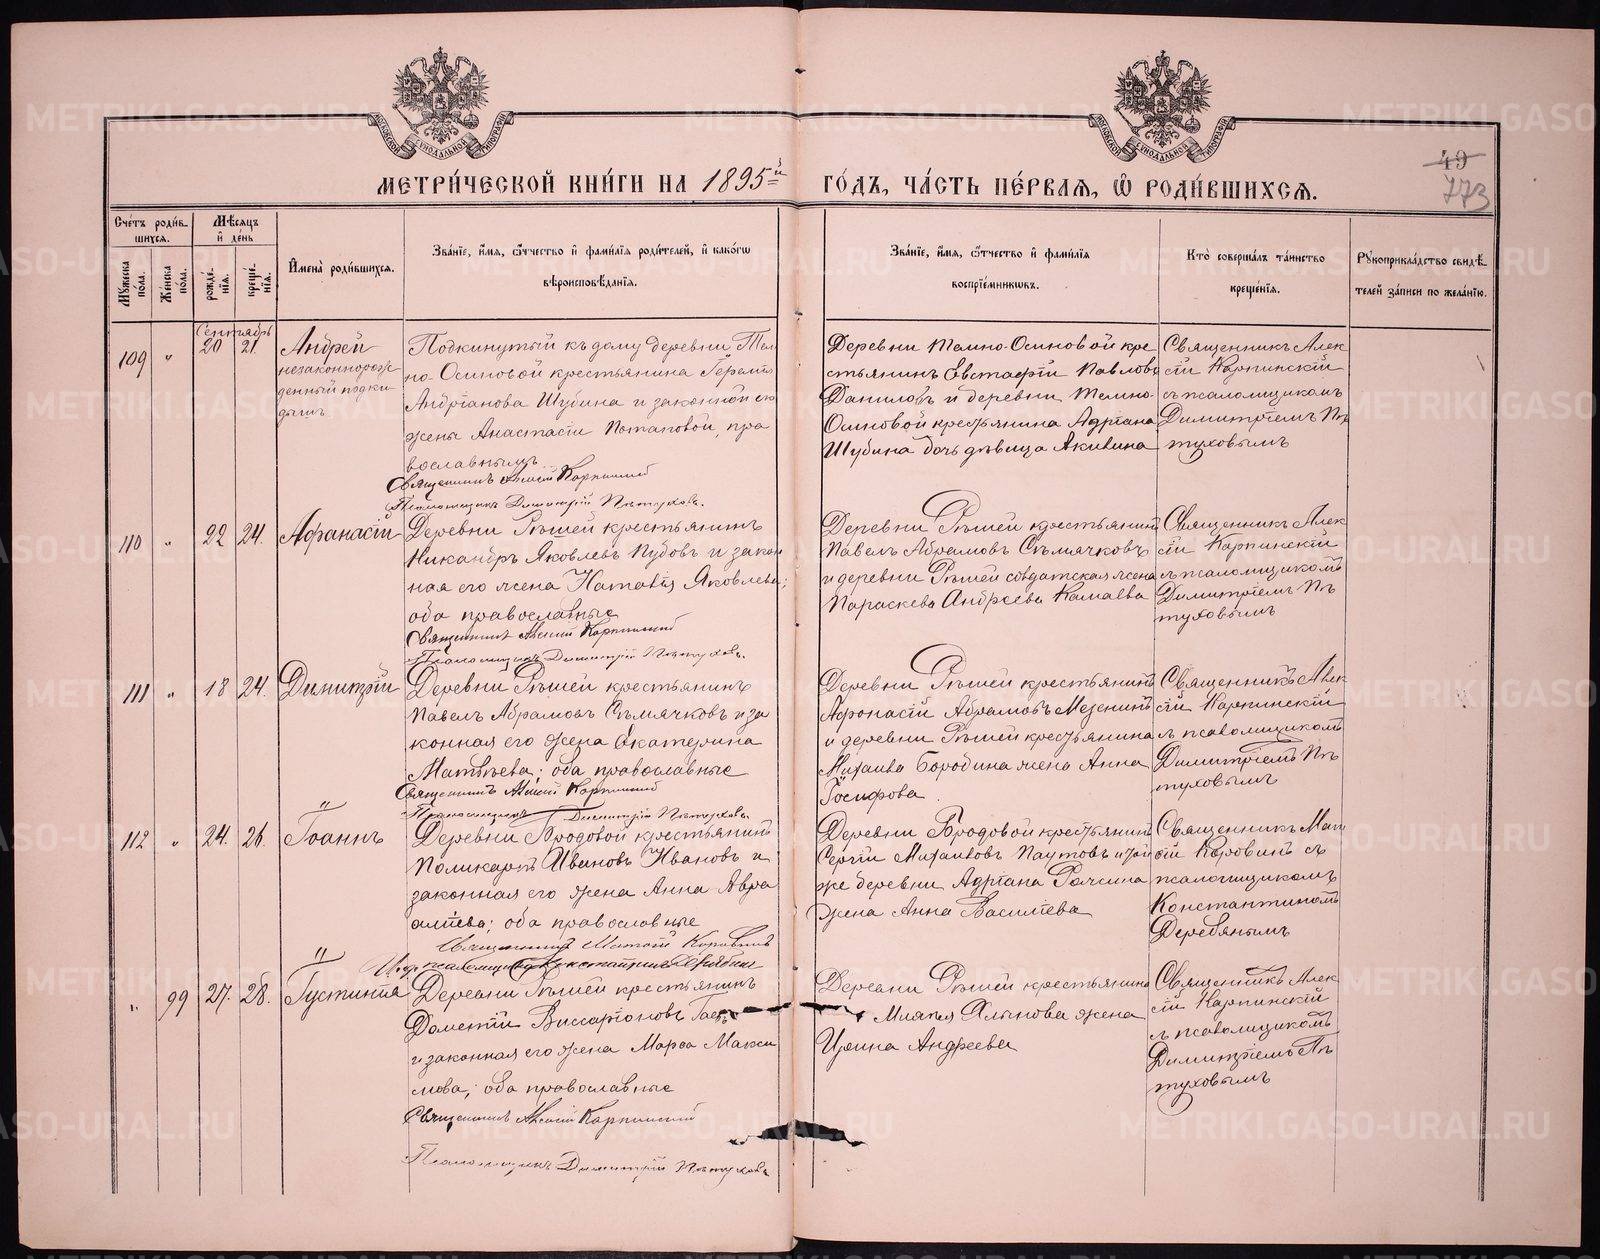 МЕТРИЧЕСКОЙ КНИГИ НА 1895й ГОДЪ, ЧАСТЬ ПЕРВАЯ, Ѡ РОДИВШИХСЯ.
49
773
Счетъ родившихся.
Мѣсяцъ и день
Мужеска пола.
Женска пола.
рожденія.
крещенія.
Имена родившихся.
Званіе, имя, ѡтчество и фамилія родителей, и какогѡ вѣроисповѣданія.
Званіе, имя, ѡтчество и фамилія воспріемникѡвъ.
Кто совершалъ таинство крещенія.
Рукоприкладство свидѣтелей записи по желанію.
Сентябрь
109 " 20 21.
Андрей
незаконнорож
денный подки
дышъ
Подкинутый къ дому деревни Тем
но-Осиновой крестьянина
Андріанова Шубина и законной его
жены Анастасіи Потаповой, пра
вославнымъ
Священникъ Алексій Карпинскій
Псаломщикъ Димитрій Пѣтуховъ.
Деревни Темно-Осиновой кре
стьянинъ Евстафій Павловъ
Даниловъ и деревни Темно-
Осиновой крестьянина Адріана
Шубина дочь дѣвица Акилина
Священникъ Алек
сій Карпинскій
съ псаломщикомъ
Димитріемъ Пѣ
туховымъ
110 " 22 24.
Афанасій
Деревни Рѣшей крестьянинъ
Никандръ Яковлевъ Пубовъ и закон
ная его жена Наталія Яковлева;
оба православные
Священникъ Алексій Карпинскій
Псаломщикъ Димитрій Пѣтуховъ.
Деревни Рѣшей крестьянинъ
Павелъ Абрамовъ Сѣмячковъ
и деревни Рѣшей солдатская жена
Параскева Андреева Камаева
Священникъ Алек
сій Карпинскій
съ псаломщикомъ
Димитріемъ Пѣ
туховымъ
111 " 18 24.
Димитрій
Деревни Рѣшей крестьянинъ
Павелъ Абрамовъ Сѣмячковъ и за
конная его жена Екатерина
Матвѣева; оба православные
Священникъ Алексій Карпинскій
Псаломщикъ Димитрій Пѣтуховъ.
Деревни Рѣшей крестьянинъ
Афонасій Абрамовъ Мезенинъ
и деревни Рѣшей крестьянина
Михаила Бородина жена Анна
Іосифова
Священникъ Алек
сій Карпинскій
съ псаломщикомъ
Димитріемъ Пѣ
туховымъ
112 " 24. 26.
Іоаннъ
Деревни Бродовой крестьянинъ
Поликарпъ Ивановъ Ивановъ и
законная его жена Анна Авра
аміева; оба православные
Священникъ Матѳій Коровинъ
Деревни Бродовой крестьянинъ
Сергій Михаиловъ Паутовъ и той
же деревни Адріана
жена Анна Васильева
Священникъ Мат
ѳій Коровинъ съ
псаломщикомъ
Константиномъ
Деребянымъ
" 99 27. 28.
Іустинія
Деревни Рѣшей крестьянинъ
Дометій Виссаріоновъ
и законная его жена Марѳа Макси
мова; оба православные
Священникъ Алексій Карпинскій
Псаломщикъ Димитрій Пѣтуховъ
Деревни Рѣшей крестьянина
Хлынова жена
Ирина Андреева
Священникъ Алек
сій Карпинскій
съ псаломщикомъ
Димитріемъ Пѣ
туховымъ
METRIKI.GASO-URAL.RU